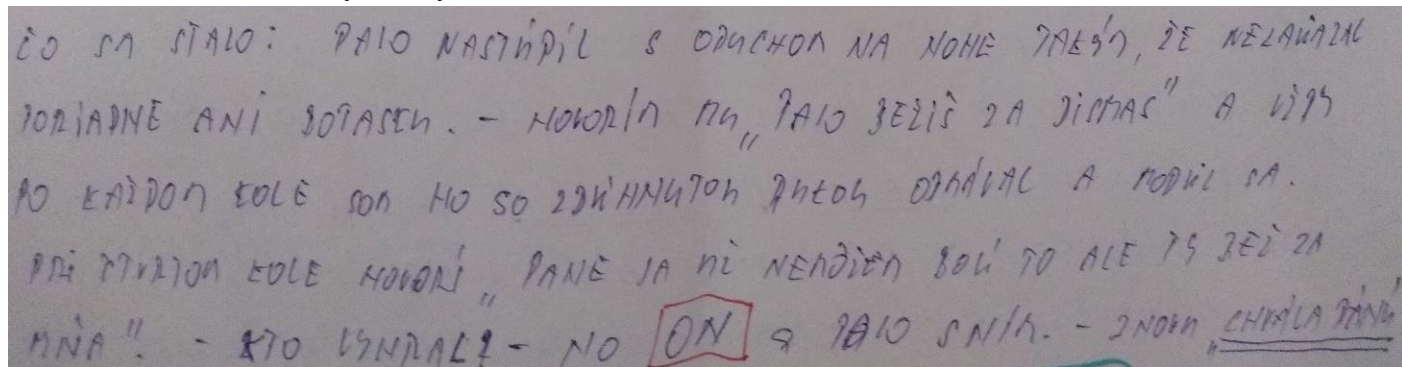 ČO SA STALO: PALO NASTÚPIL S OPUCHOM NA NOHE TAKÝM, ŽE NEZAVIAZAL
PORIADNE ANI BOTASKU. - HOVORÍM MU „PALO BEŽÍŠ ZA DISMAS" A VŽDY
PO KAŽDOM KOLE SOM HO SO ZDVIHNUTOU RUKOU OBDIVAL A MODLIL SA.
PRI ŠTVRTOM KOLE HOVORÍ „PANE JA UŽ NEMÔŽEM BOLÍ TO ALE TY BEŽ ZA
MŇA". - KTO VYHRAL? - NO ON A PALO S NÍM. - ZNOVU „CHVÁLA PÁNU